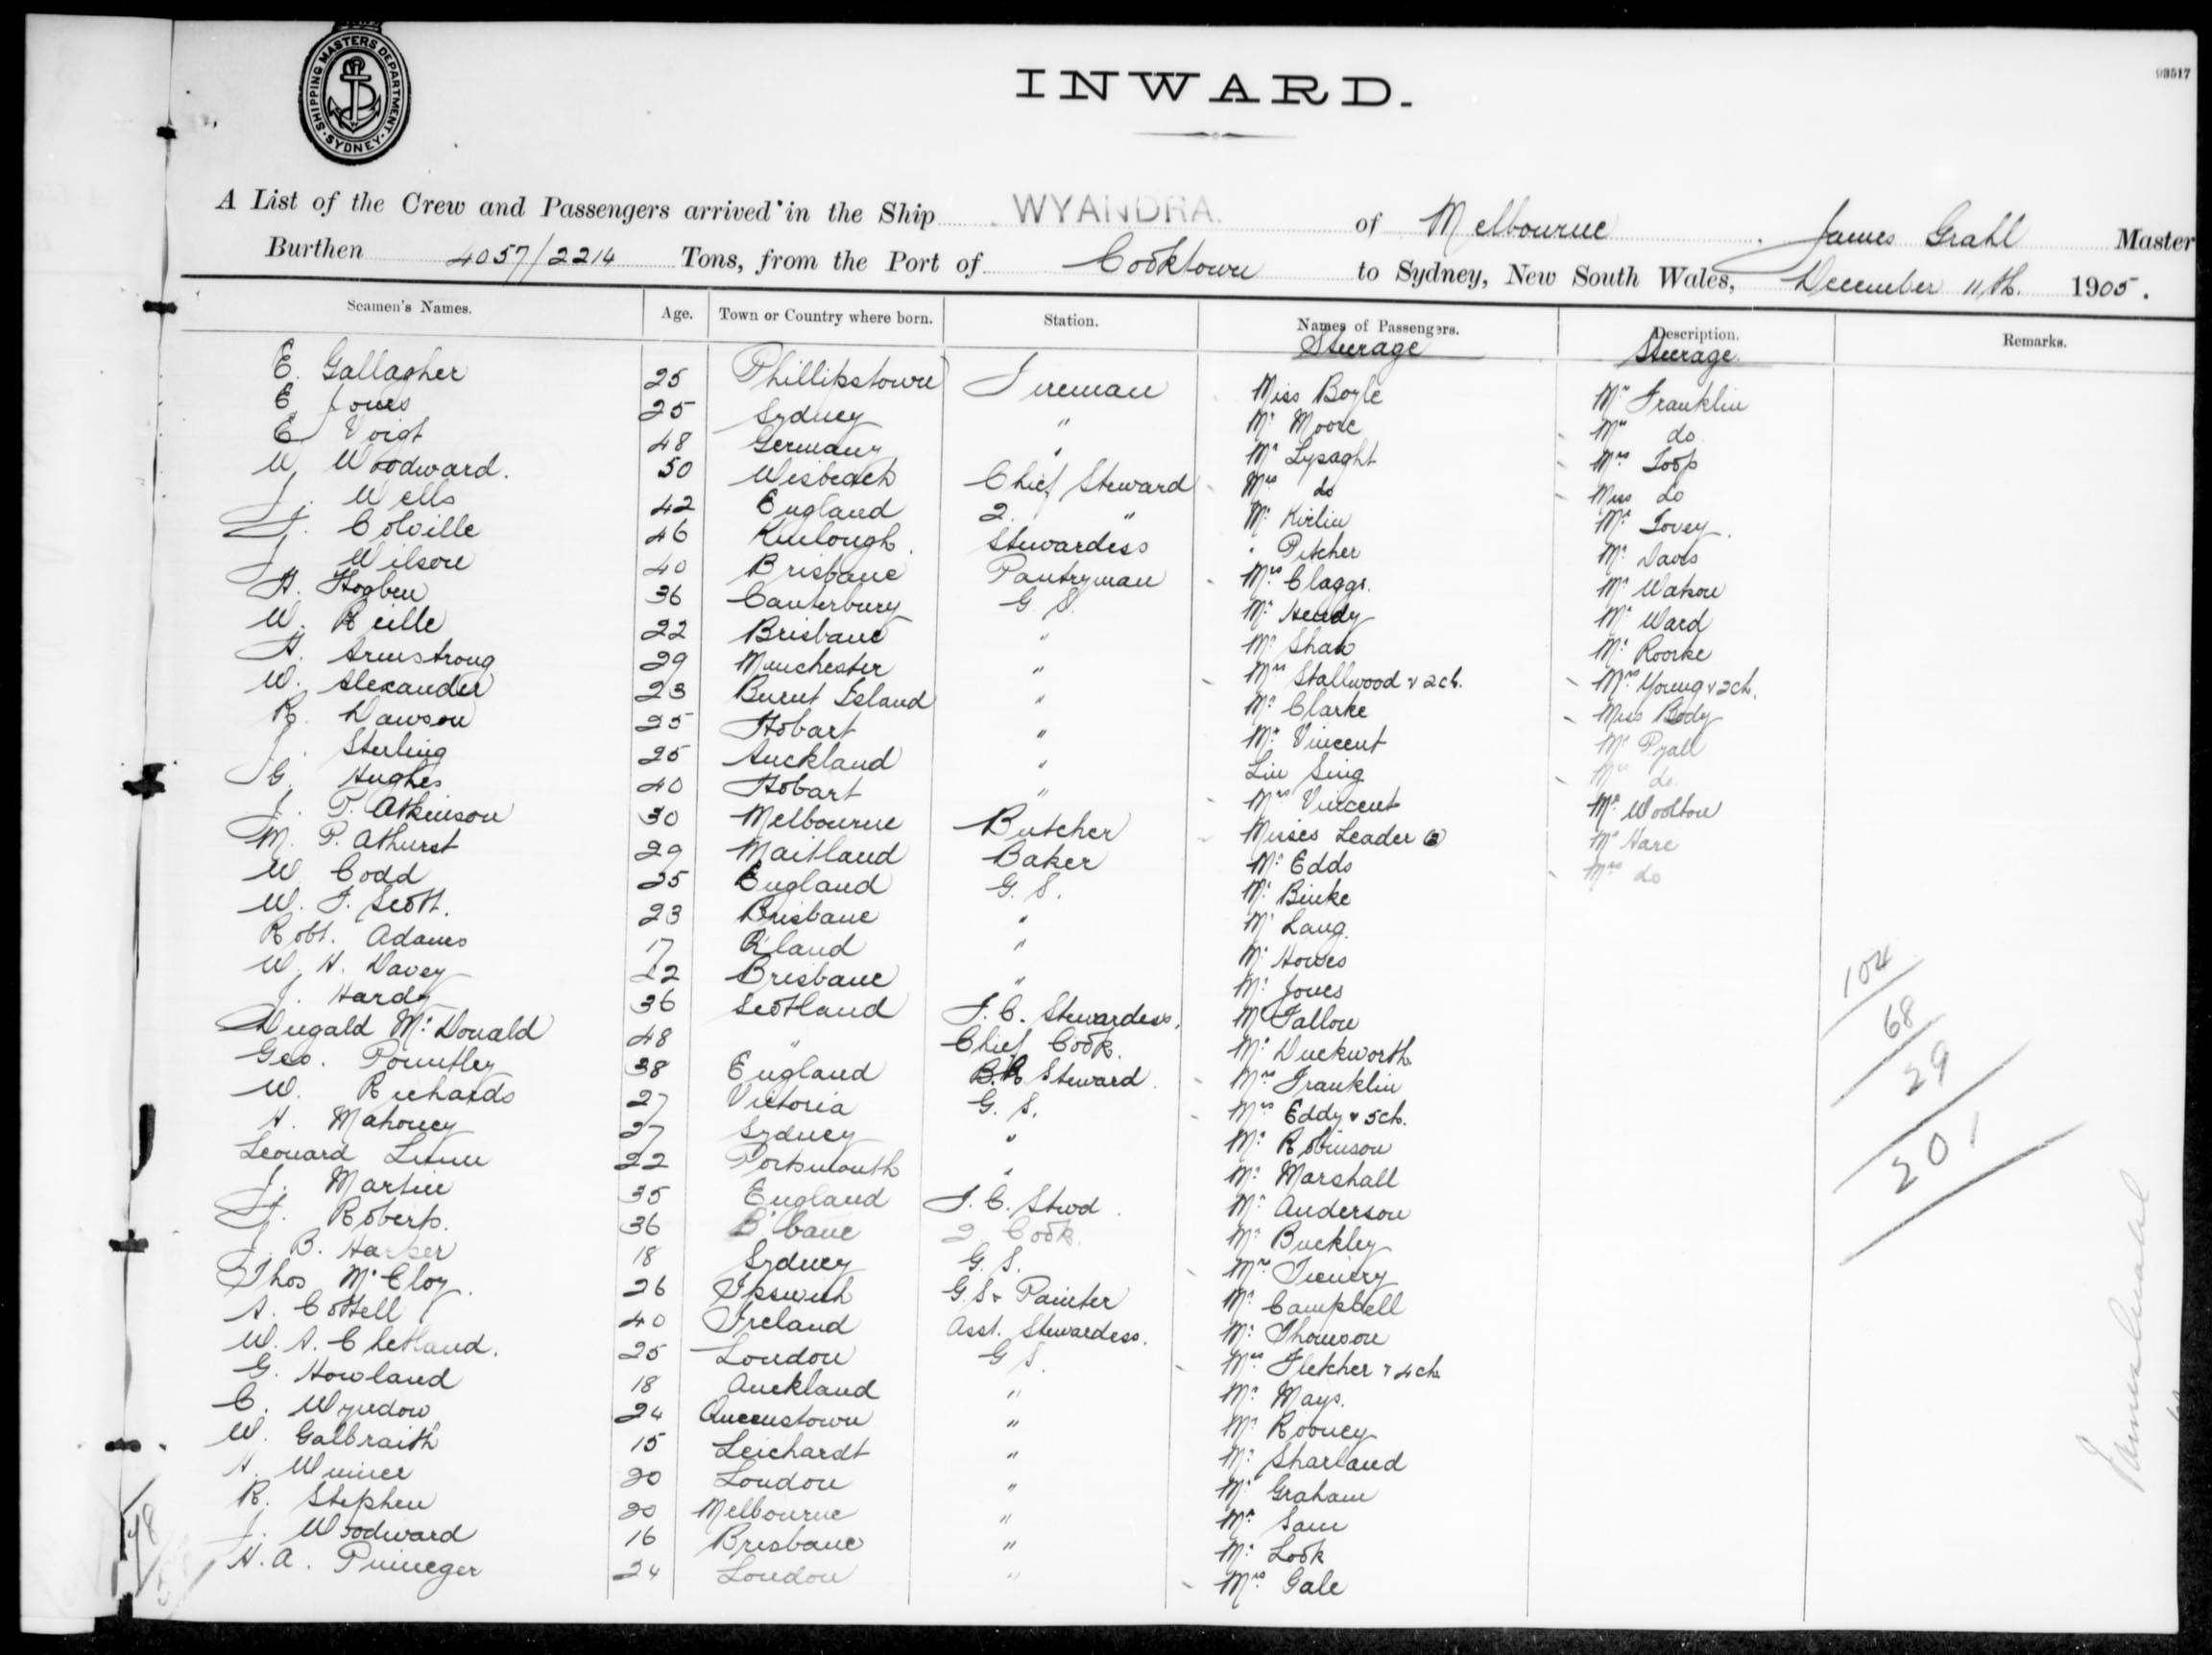 SHIPPING MASTERS DEPARTMENT SYDNEY
INWARD.
93517
A List of the Crew and Passengers arrived in the Ship WYANDRA. of Melbourne James Grahl Master
Burthen 4057/2214 Tons, from the Port of Cooktown to Sydney, New South Wales, December 11th. 1905.
Seamen's Names. Age. Town or Country where born. Station. Names of Passengers. Description. Remarks.
Steerage Steerage
E. Gallagher 25 Phillipstown Fireman Miss Boyle Mr Franklin
E. Jones 25 Sydney " Mr Moore Mrs do
E. Voigt 48 Germany " Mr Lysaght Mrs Toop
W. Woodward. 50 Wisbeach Chief Steward Mrs do Miss do
J. Wells 42 England 2. " Mr Kirlin Mr Tovey.
J. Colville 46 Kinlough. Stewardess " Pitcher Mr Davis
J. Wilson 40 Brisbane Pantryman Mrs Claggs. Mr Watson
H. Hogben 36 Canterbury G. S. Mr Hendy Mr Ward
W. Reille 22 Brisbane " Mr Shaw Mr Roorke
H. Armstrong 29 Manchester " Mrs Stallwood & 2ch. Mrs Young & 2ch.
W. Alexander 23 Burnt Island " Mr Clarke Miss Body
R. Dawson 25 Hobart " Mr Vincent Mr Pyall
J. Sterling 25 Auckland " Lin Sing Mrs do
G. Hughes 40 Hobart " Mrs Vincent Mr Woolton
J. T. Atkinson 30 Melbourne Butcher Misses Leader (2) Mr Hare
M. P. Athurst 29 Maitland Baker Mr Edds Mrs do
W. Codd 25 England G. S. Mr Binke
W. J. Scott. 23 Brisbane " Mr Lang.
Robt. Adams 17 Q'land " Mr Howes
W. H. Davey 22 Brisbane " Mr Jones
J. Hardy 36 Scotland F. C. Stewardess. Mr Fallon
Dugald McDonald 48 " Chief Cook. Mr Duckworth
Geo. Pountley 38 England B.R Steward. Mrs Franklin
W. Richards 27 Victoria G. S. Mrs Eddy & 5ch.
A. Mahoney 27 Sydney " Mr Robinson
Leonard Lunn 22 Portsmouth " Mr Marshall
J. Martin 35 England F. C. Stwd. Mr Anderson
J. Roberts. 36 B'bane 2 Cook. Mr Buckley
J. B. Harper 18 Sydney G. S. Mrs
Thos McCloy. 26 Ipswich G.S & Painter Mr Campbell
A. Cottell 40 Ireland Asst. Stewardess. Mr Thomson
W. A. Chetland. 25 London G S. Mrs Fletcher & 4ch
G. Howland 18 Auckland " Mr Mays.
C. Wyndow 24 Queenstown " Mr Rooney
W. Galbraith 15 Leichardt " Mr Sharland
A. Winner 20 London " Mr Graham
R. Stephen 20 Melbourne " Mr Sam
J. Woodward 16 Brisbane " Mr Look
H. A. Pinneger 24 London " Mrs Gale
104
68
29
201
James Grahl